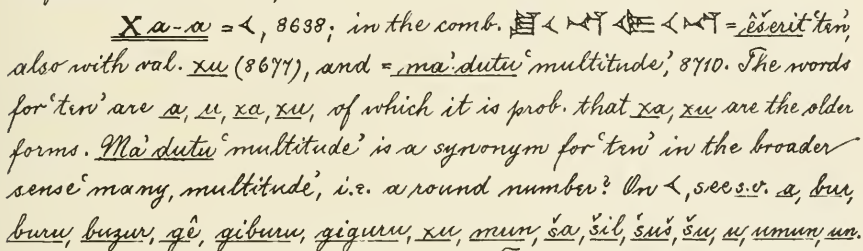 Xa-a = 𒌋, 8638; in the comb. 𒌋 𒌋 = êšerit 'ten',
also with val. xu (8677), and = ma'dutu 'multitude', 8710. The words
for 'ten' are a, u, xa, xu, of which it is prob. that xa, xu are the older
forms. Ma'dutu 'multitude' is a synonym for 'ten' in the broader
sense 'many, multitude', i.e. a round number? On 𒌋, see s.v. a, bur,
buru, buzur, gê, giburu, giguru, xu, mun, ša, šil, šuš, šu, u, umun, un.